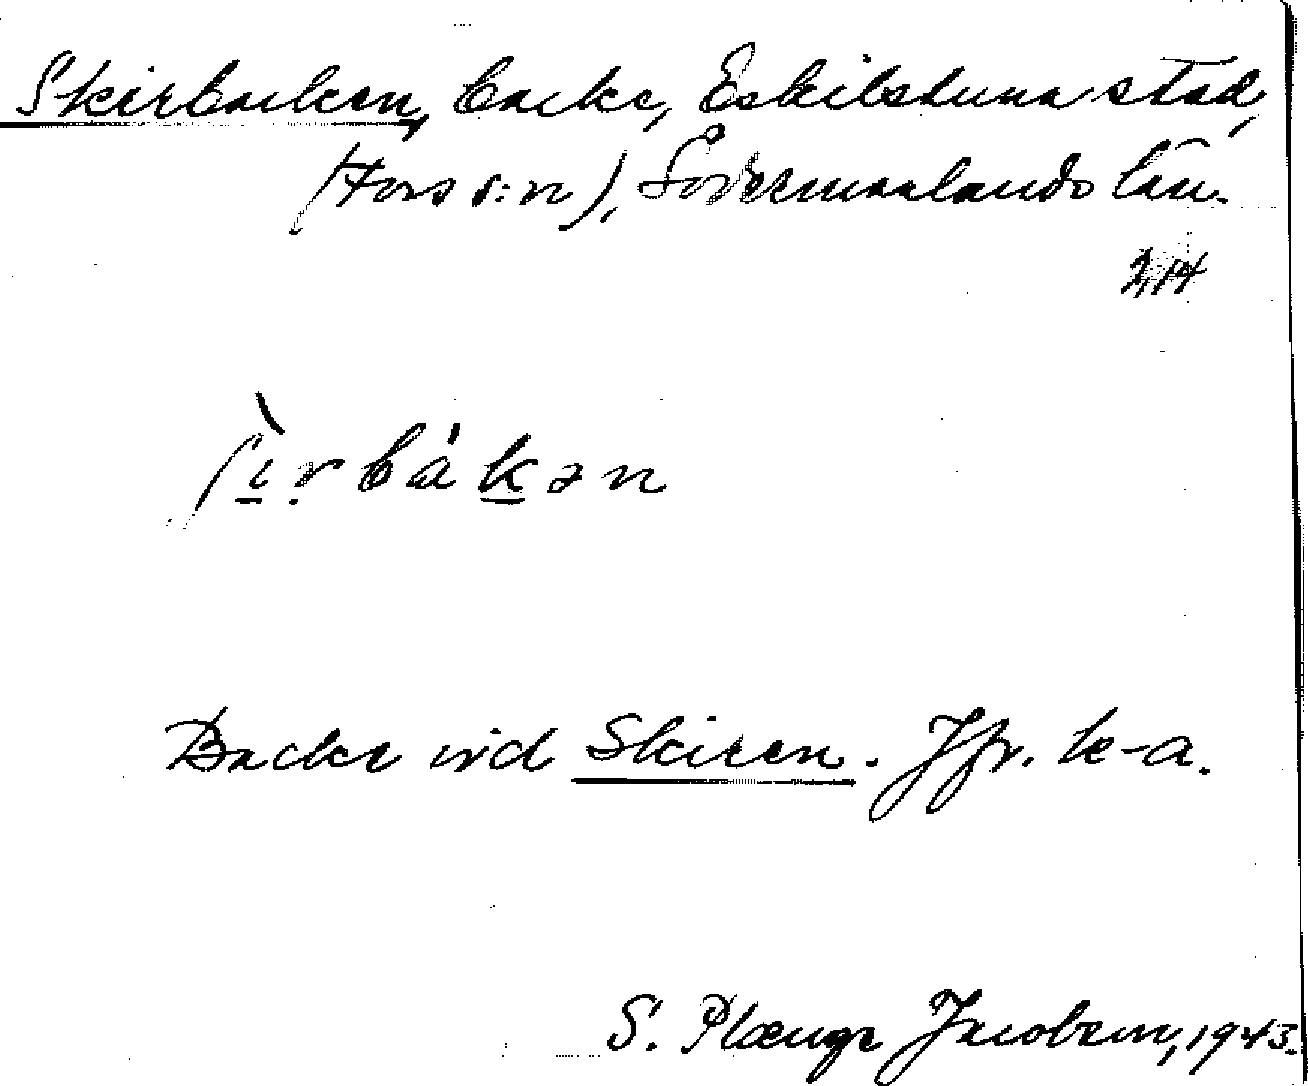 Skirbacken, backe, Eskilstuna stad,
(Fors s:n), Södermanlands län.
2,14
ʃìrbàkən
Backe vid Skiren. Jfr. k-a.
S. Plænge Jacobsen, 1943.